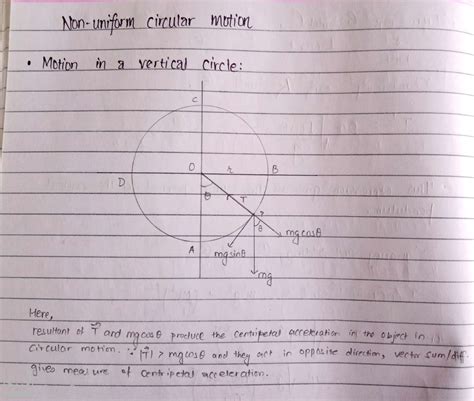 Non-uniform circular motion
• Motion in a vertical circle:
C
O
r
B
D
θ
r
T
P
θ
mgcosθ
A
mgsinθ
mg
Here,
resultant of T⃗ and mgcosθ produce the centripetal acceleration in the object in
circular motion. ∵ |T⃗| > mgcosθ and they act in opposite direction, vector sum/diff.
gives measure of centripetal acceleration.